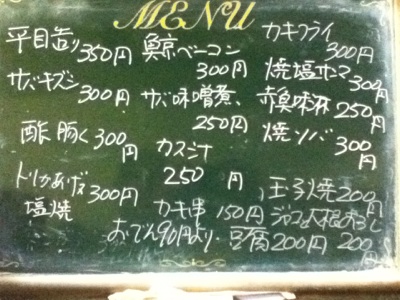 MENU
平目造り 350円
サバキズシ 300円
酢豚く 300円
トリからあげ 300円
塩焼
鯨ベーコン 300円
サバ味噌煮 250円
カス汁 250円
カキ串 150円
おでん90円より
カキフライ 300円
焼塩サンマ 300円
赤魚味淋 250円
焼ソバ 300円
玉子焼200円
ジャコ大根おろし 200円
豆腐200円